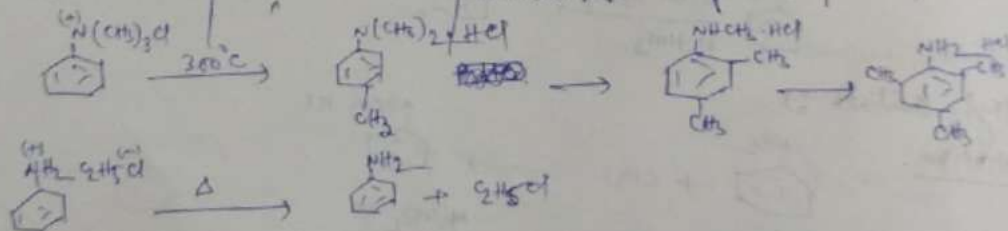 (+)
N(CH3)3Cl
300°C
N(CH3)2·HCl
CH3
NHCH3·HCl
CH3
CH3
NH2
HCl
CH3
CH3
CH3
(+)
NH2
C2H5
(-)
Cl
Δ
NH2
+ C2H5Cl